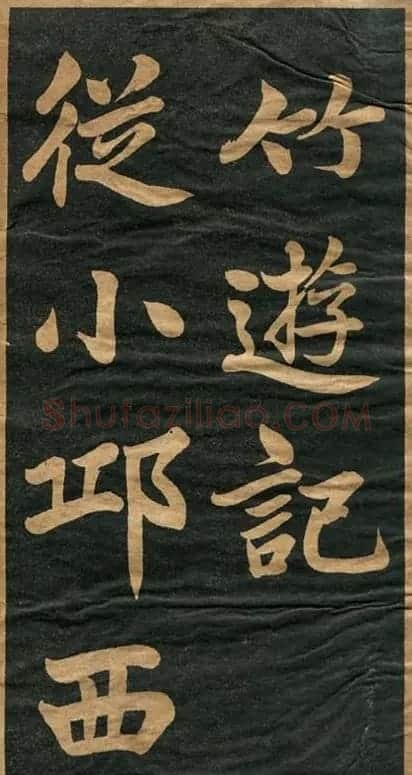 竹遊記
從小邱西
Shufaziliao.COM